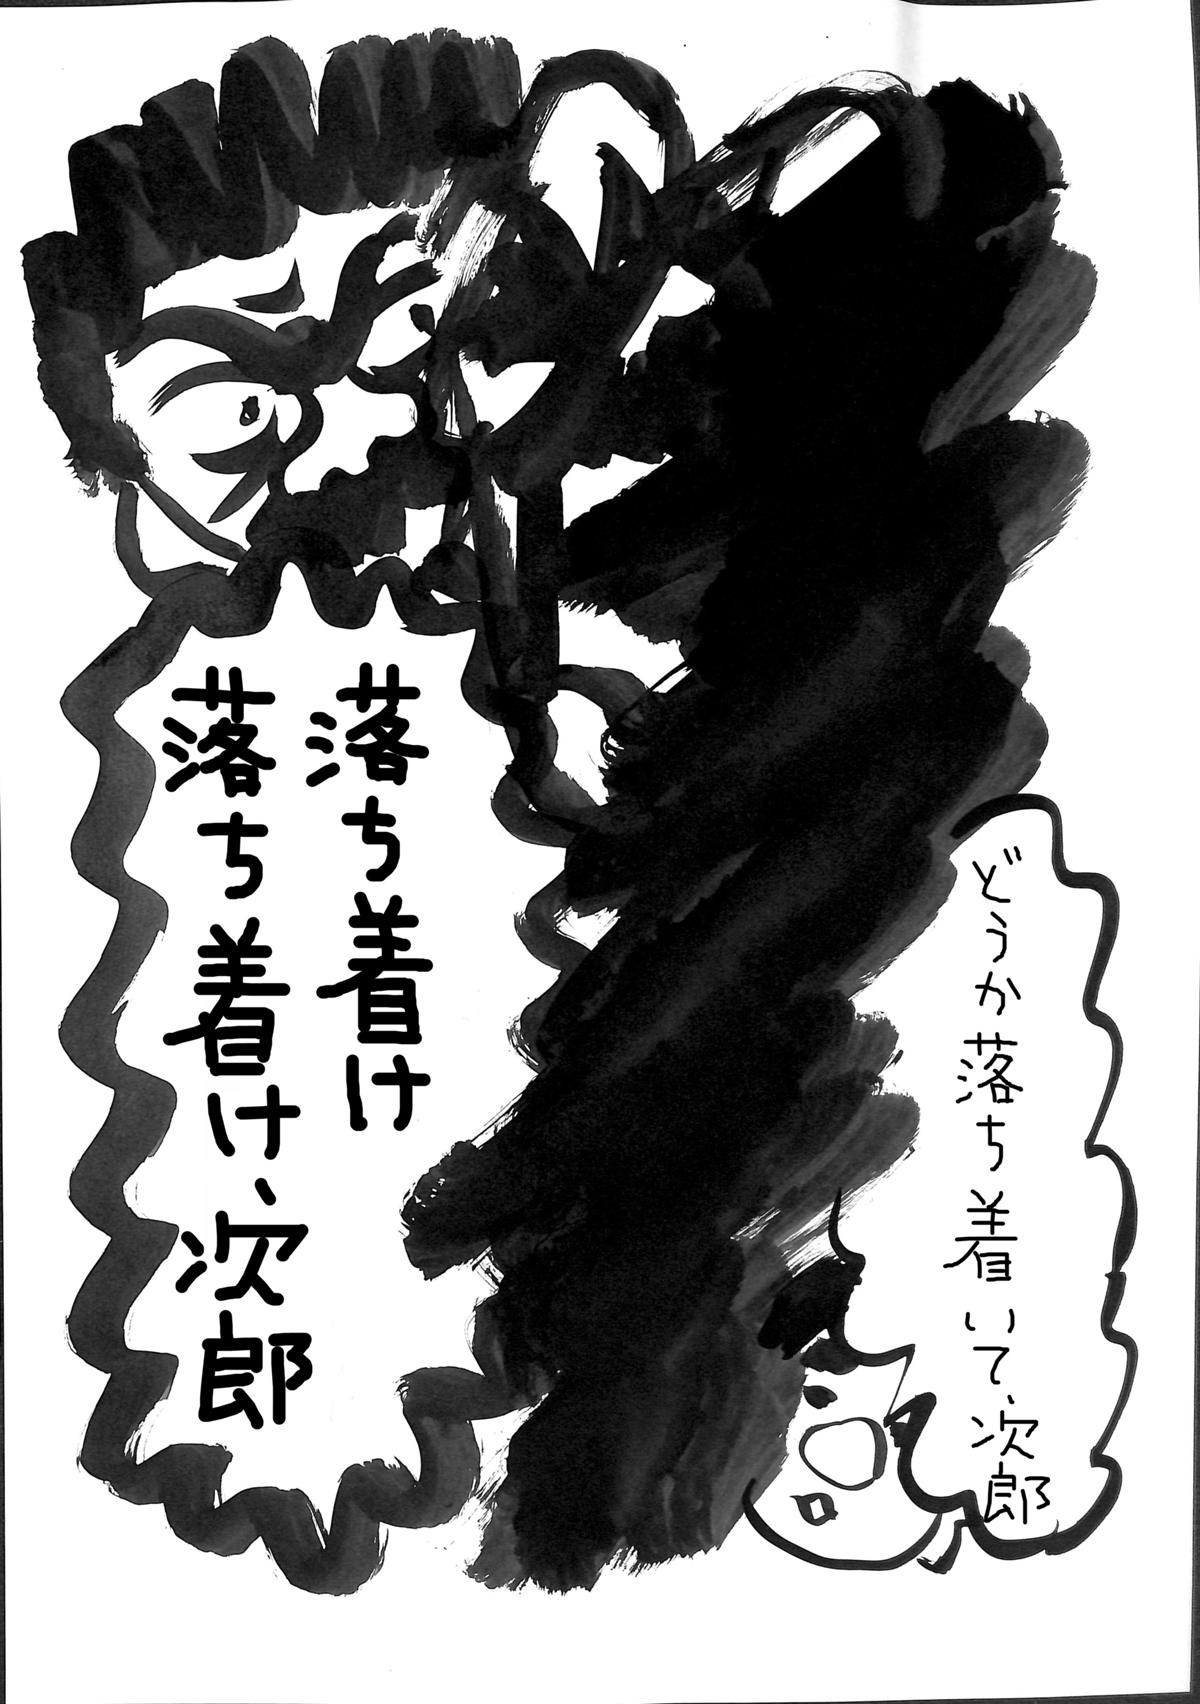 どうか落ち着いて、次郎
落ち着け
落ち着け、次郎